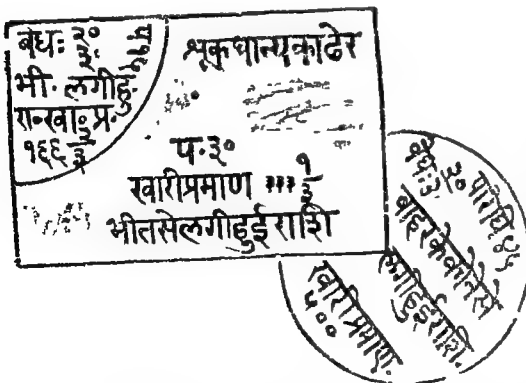 बेधः २०/३.
भी. लगीहु.
रा. खा. प्र.
१६६ २/३
शूकधान्यकाढेर
प. ३०
खारीप्रमाण ३३३ १/३
भीतसेलगीहुईराशि
बेधः २०/३. परिधि ४५
बाहरकेकोनेसे
लगीहुईराशि.
खारीप्रमाण.
५००